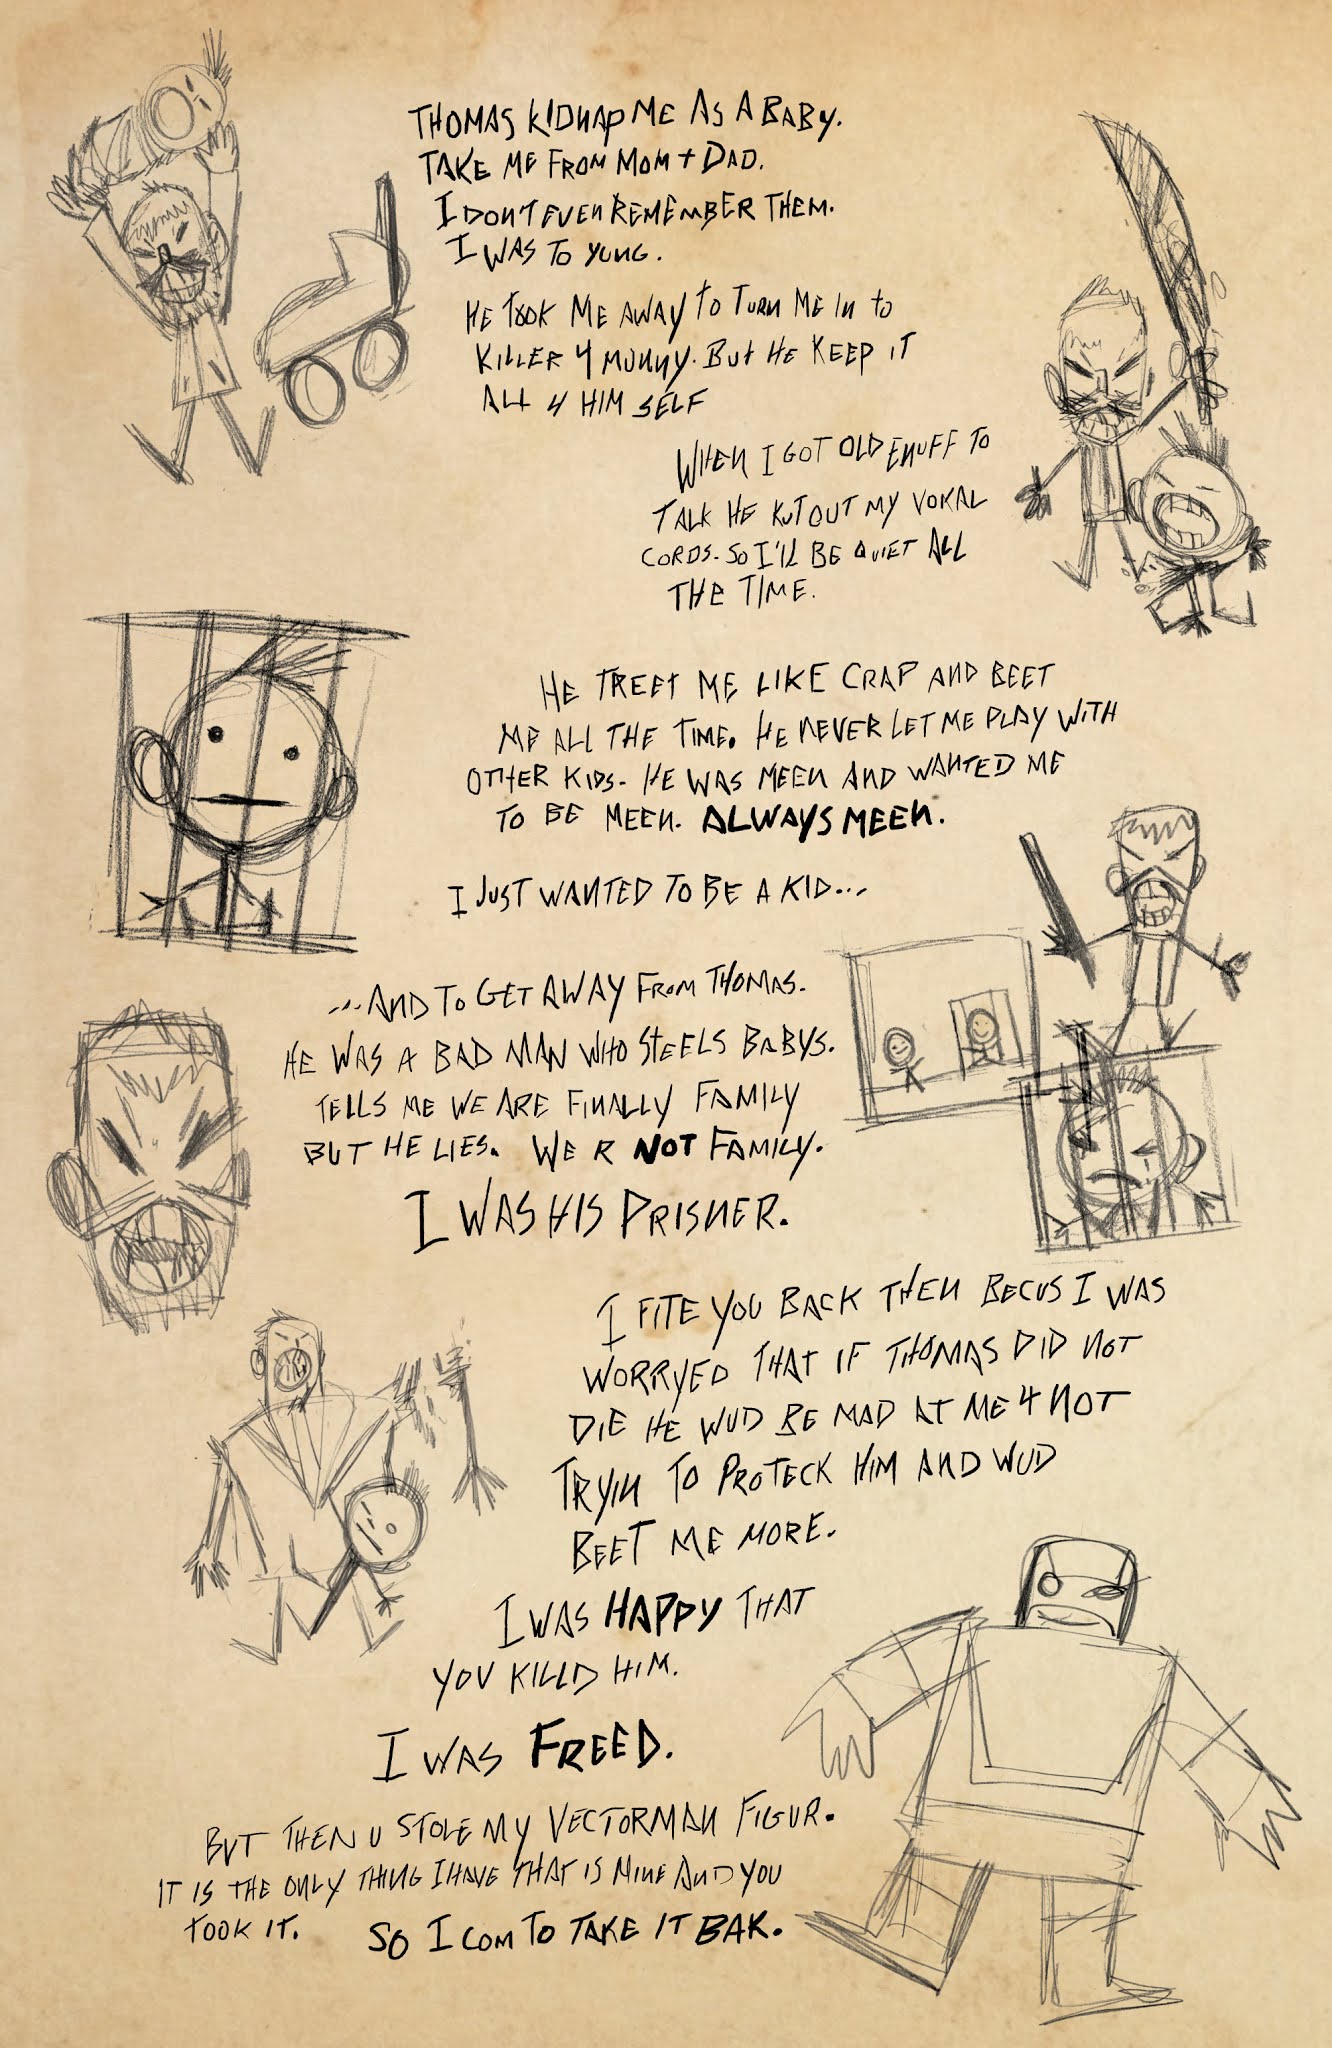 THOMAS KIDNAP ME AS A BABY.
TAKE ME FROM MOM + DAD.
I DON'T EVEN REMEMBER THEM.
I WAS TO YUNG.
HE TOOK ME AWAY TO TURN ME IN TO
KILLER 4 MUNNY. BUT HE KEEP IT
ALL 4 HIM SELF
WHEN I GOT OLD ENUFF TO
TALK HE KUT OUT MY VOKAL
CORDS. SO I'LL BE QUIET ALL
THE TIME.
HE TREET ME LIKE CRAP AND BEET
ME ALL THE TIME. HE NEVER LET ME PLAY WITH
OTHER KIDS. HE WAS MEEN AND WANTED ME
TO BE MEEN. ALWAYS MEEN.
I JUST WANTED TO BE A KID...
...AND TO GET AWAY FROM THOMAS.
HE WAS A BAD MAN WHO STEELS BABYS.
TELLS ME WE ARE FINALLY FAMILY
BUT HE LIES. WE R NOT FAMILY.
I WAS HIS PRISNER.
I FITE YOU BACK THEN BECUS I WAS
WORRYED THAT IF THOMAS DID NOT
DIE HE WUD BE MAD AT ME 4 NOT
TRYIN TO PROTECK HIM AND WUD
BEET ME MORE.
I WAS HAPPY THAT
YOU KILLD HIM.
I WAS FREED.
BUT THEN U STOLE MY VECTORMAN FIGUR.
IT IS THE ONLY THING I HAVE THAT IS MINE AND YOU
TOOK IT. SO I COM TO TAKE IT BAK.